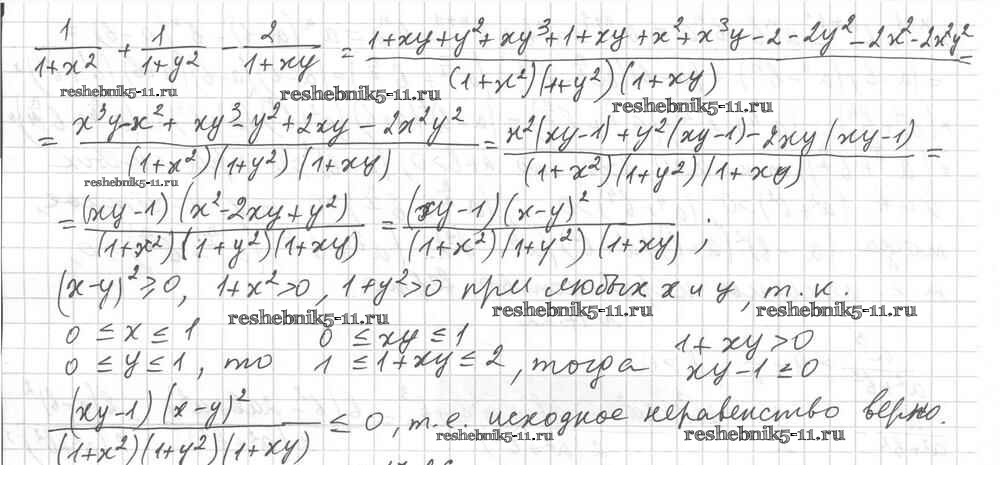 1/(1+x²) + 1/(1+y²) - 2/(1+xy) = (1+xy+y²+xy³+1+xy+x²+x³y-2-2y²-2x²-2x²y²)/((1+x²)(1+y²)(1+xy)) =
reshebnik5-11.ru reshebnik5-11.ru reshebnik5-11.ru
= (x³y-x²+xy³-y²+2xy-2x²y²)/((1+x²)(1+y²)(1+xy)) = (x²(xy-1)+y²(xy-1)-2xy(xy-1))/((1+x²)(1+y²)(1+xy)) =
reshebnik5-11.ru
= (xy-1)(x²-2xy+y²)/((1+x²)(1+y²)(1+xy)) = (xy-1)(x-y)²/((1+x²)(1+y²)(1+xy)) ;
(x-y)²≥0, 1+x²>0, 1+y²>0 при любых x и y, т.к.
reshebnik5-11.ru reshebnik5-11.ru reshebnik5-11.ru
0 ≤ x ≤ 1 0 ≤ xy ≤ 1 1+xy>0
0 ≤ y ≤ 1, то 1 ≤ 1+xy ≤ 2, тогда xy-1 ≤ 0
(xy-1)(x-y)²/((1+x²)(1+y²)(1+xy)) ≤ 0, т.е. исходное неравенство верно.
reshebnik5-11.ru reshebnik5-11.ru